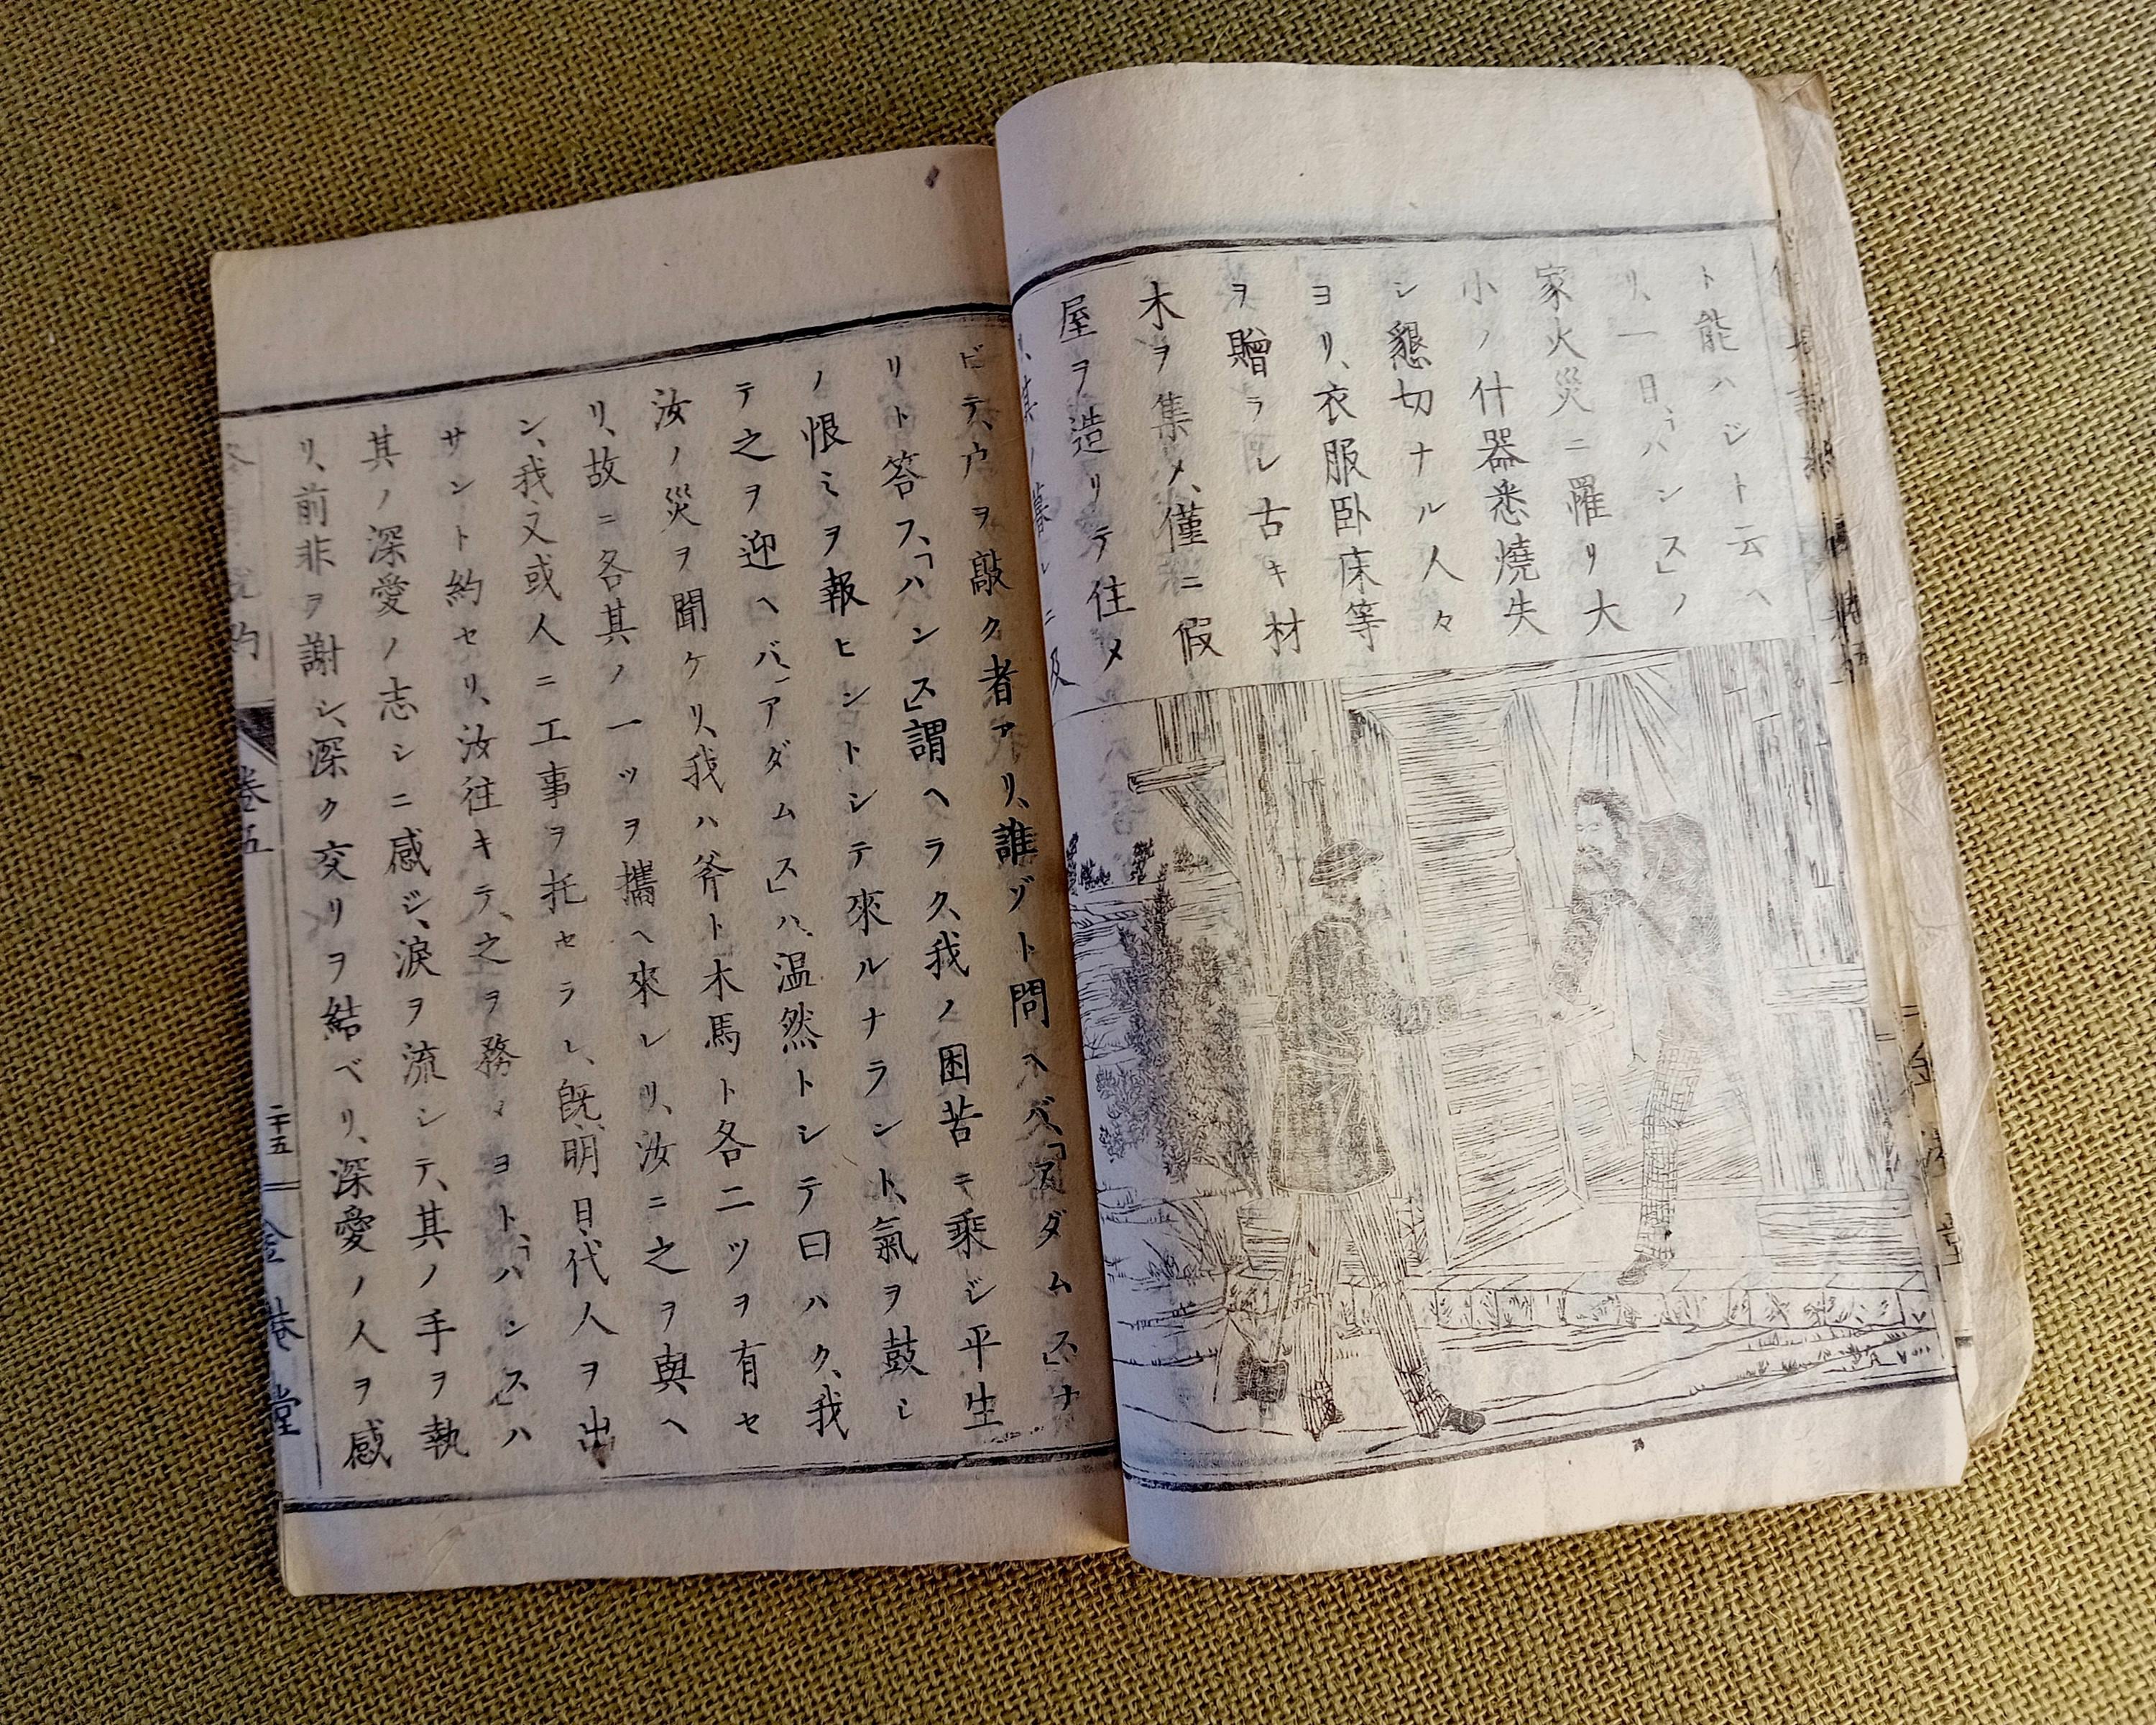 ト能ハジト云ヘ
リ、一日、「ハンス」ノ
家火災ニ罹リ大
小ノ什器悉燒失
シ懇切ナル人々
ヨリ、衣服臥床等
ヲ贈ラレ古キ材
木ヲ集メ、僅ニ假
屋ヲ造リテ住メ
リ、其ノ暮ルニ及
ビテ、户ヲ敲ク者アリ、誰ゾト問ヘバ、「アダムス」ナ
リト答フ、「ハンス」謂ヘラク、我ノ困苦ニ乘ジ平生
ノ恨ミヲ報ヒントシテ來ルナラント、氣ヲ鼓シ
テ之ヲ迎ヘバ、「アダムス」ハ、温然トシテ曰ハク、我
汝ノ災ヲ聞ケリ、我ハ斧ト木馬ト各二ツヲ有セ
リ、故ニ各其ノ一ツヲ攜ヘ來レリ、汝ニ之ヲ與ヘ
ン、我又或人ニ工事ヲ托セラレ、既ニ明日、代人ヲ出
サント約セリ、汝往キテ、之ヲ務メヨト、「ハンス」ハ
其ノ深愛ノ志シニ感ジ、淚ヲ流シテ、其ノ手ヲ執
リ、前非ヲ謝シ、深ク交リヲ結ベリ、深愛ノ人ヲ感
卷五
二十五
金港堂